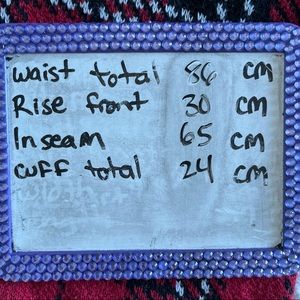 waist total 86 cm
Rise front 30 cm
Inseam 65 cm
cuff total 24 cm